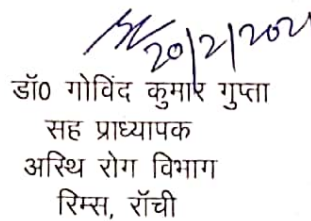 20/2/202
डॉ0 गोविंद कुमार गुप्ता
सह प्राध्यापक
अस्थि रोग विभाग
रिम्स, रॉची